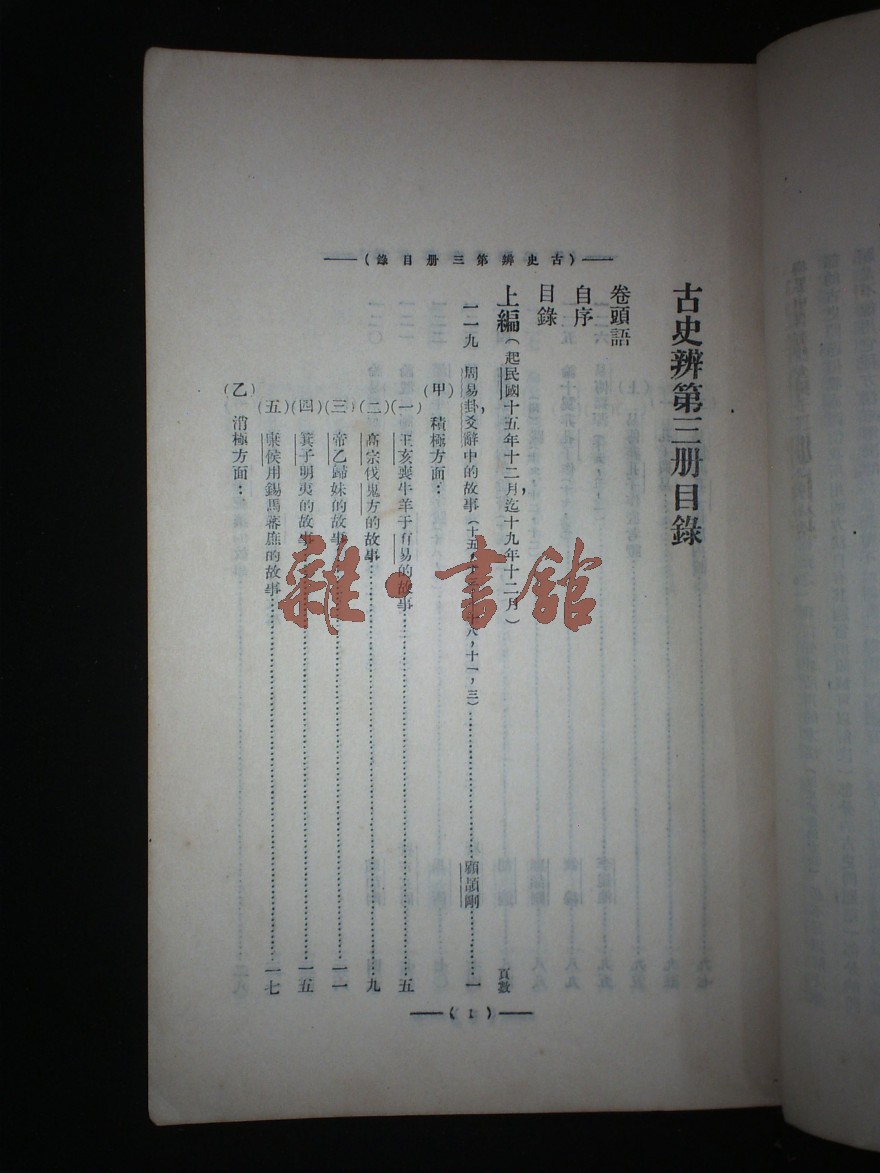 (古史辨第三册目錄)
古史辨第三册目錄
卷頭語
自序
目錄
上編(起民國十五年十二月,迄十九年十二月) 頁數
一一九 周易卦爻辭中的故事(十五, 十八,十一,三)……顧頡剛……一
(甲)積極方面:
(一)王亥喪牛羊于有易的故事……五
(二)高宗伐鬼方的故事……九
(三)帝乙歸妹的故事……一一
(四)箕子明夷的故事……一五
(五)康侯用錫馬蕃庶的故事……一七
(乙)消極方面:
(1)
雜·書館